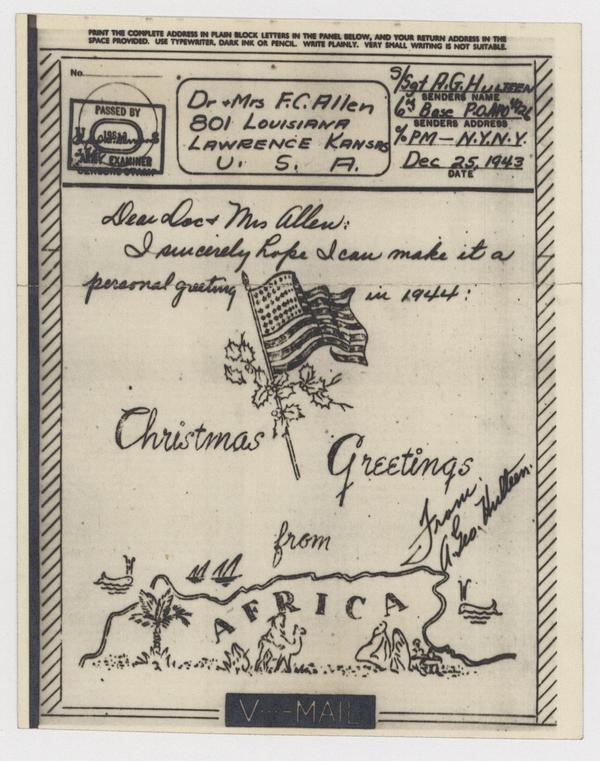 PRINT THE COMPLETE ADDRESS IN PLAIN BLOCK LETTERS IN THE PANEL BELOW, AND YOUR RETURN ADDRESS IN THE
SPACE PROVIDED. USE TYPEWRITER, DARK INK OR PENCIL. WRITE PLAINLY. VERY SMALL WRITING IS NOT SUITABLE.
No.
PASSED BY
ARMY EXAMINER
Dr + Mrs F.C. Allen
801 LOUISIANA
LAWRENCE KANSAS
U. S. A.
S/Sgt A.G. HULTEEN
SENDERS NAME
6th Base P.O. APO
SENDERS ADDRESS
% PM — N.Y.N.Y.
Dec 25, 1943
DATE
Dear Doc + Mrs Allen:
I sincerely hope I can make it a
personal greeting in 1944:
Christmas
Greetings
from
From
A. Geo. Hulteen.
AFRICA
V····—MAIL